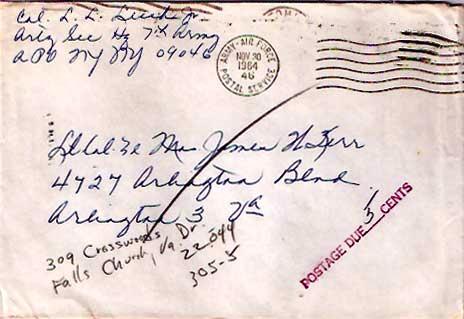 Col. L. L. Leech Jr
Arty Sec Hq 7th Army
APO NY NY 09046
ARMY-AIR FORCE
NOV 30
1964
46
POSTAL SERVICE
Lt Col & Mrs James W Kerr
4727 Arlington Blvd
Arlington 3 Va
309 Crosswoods Dr
Falls Church, Va.
22044
305-5
POSTAGE DUE 5 CENTS